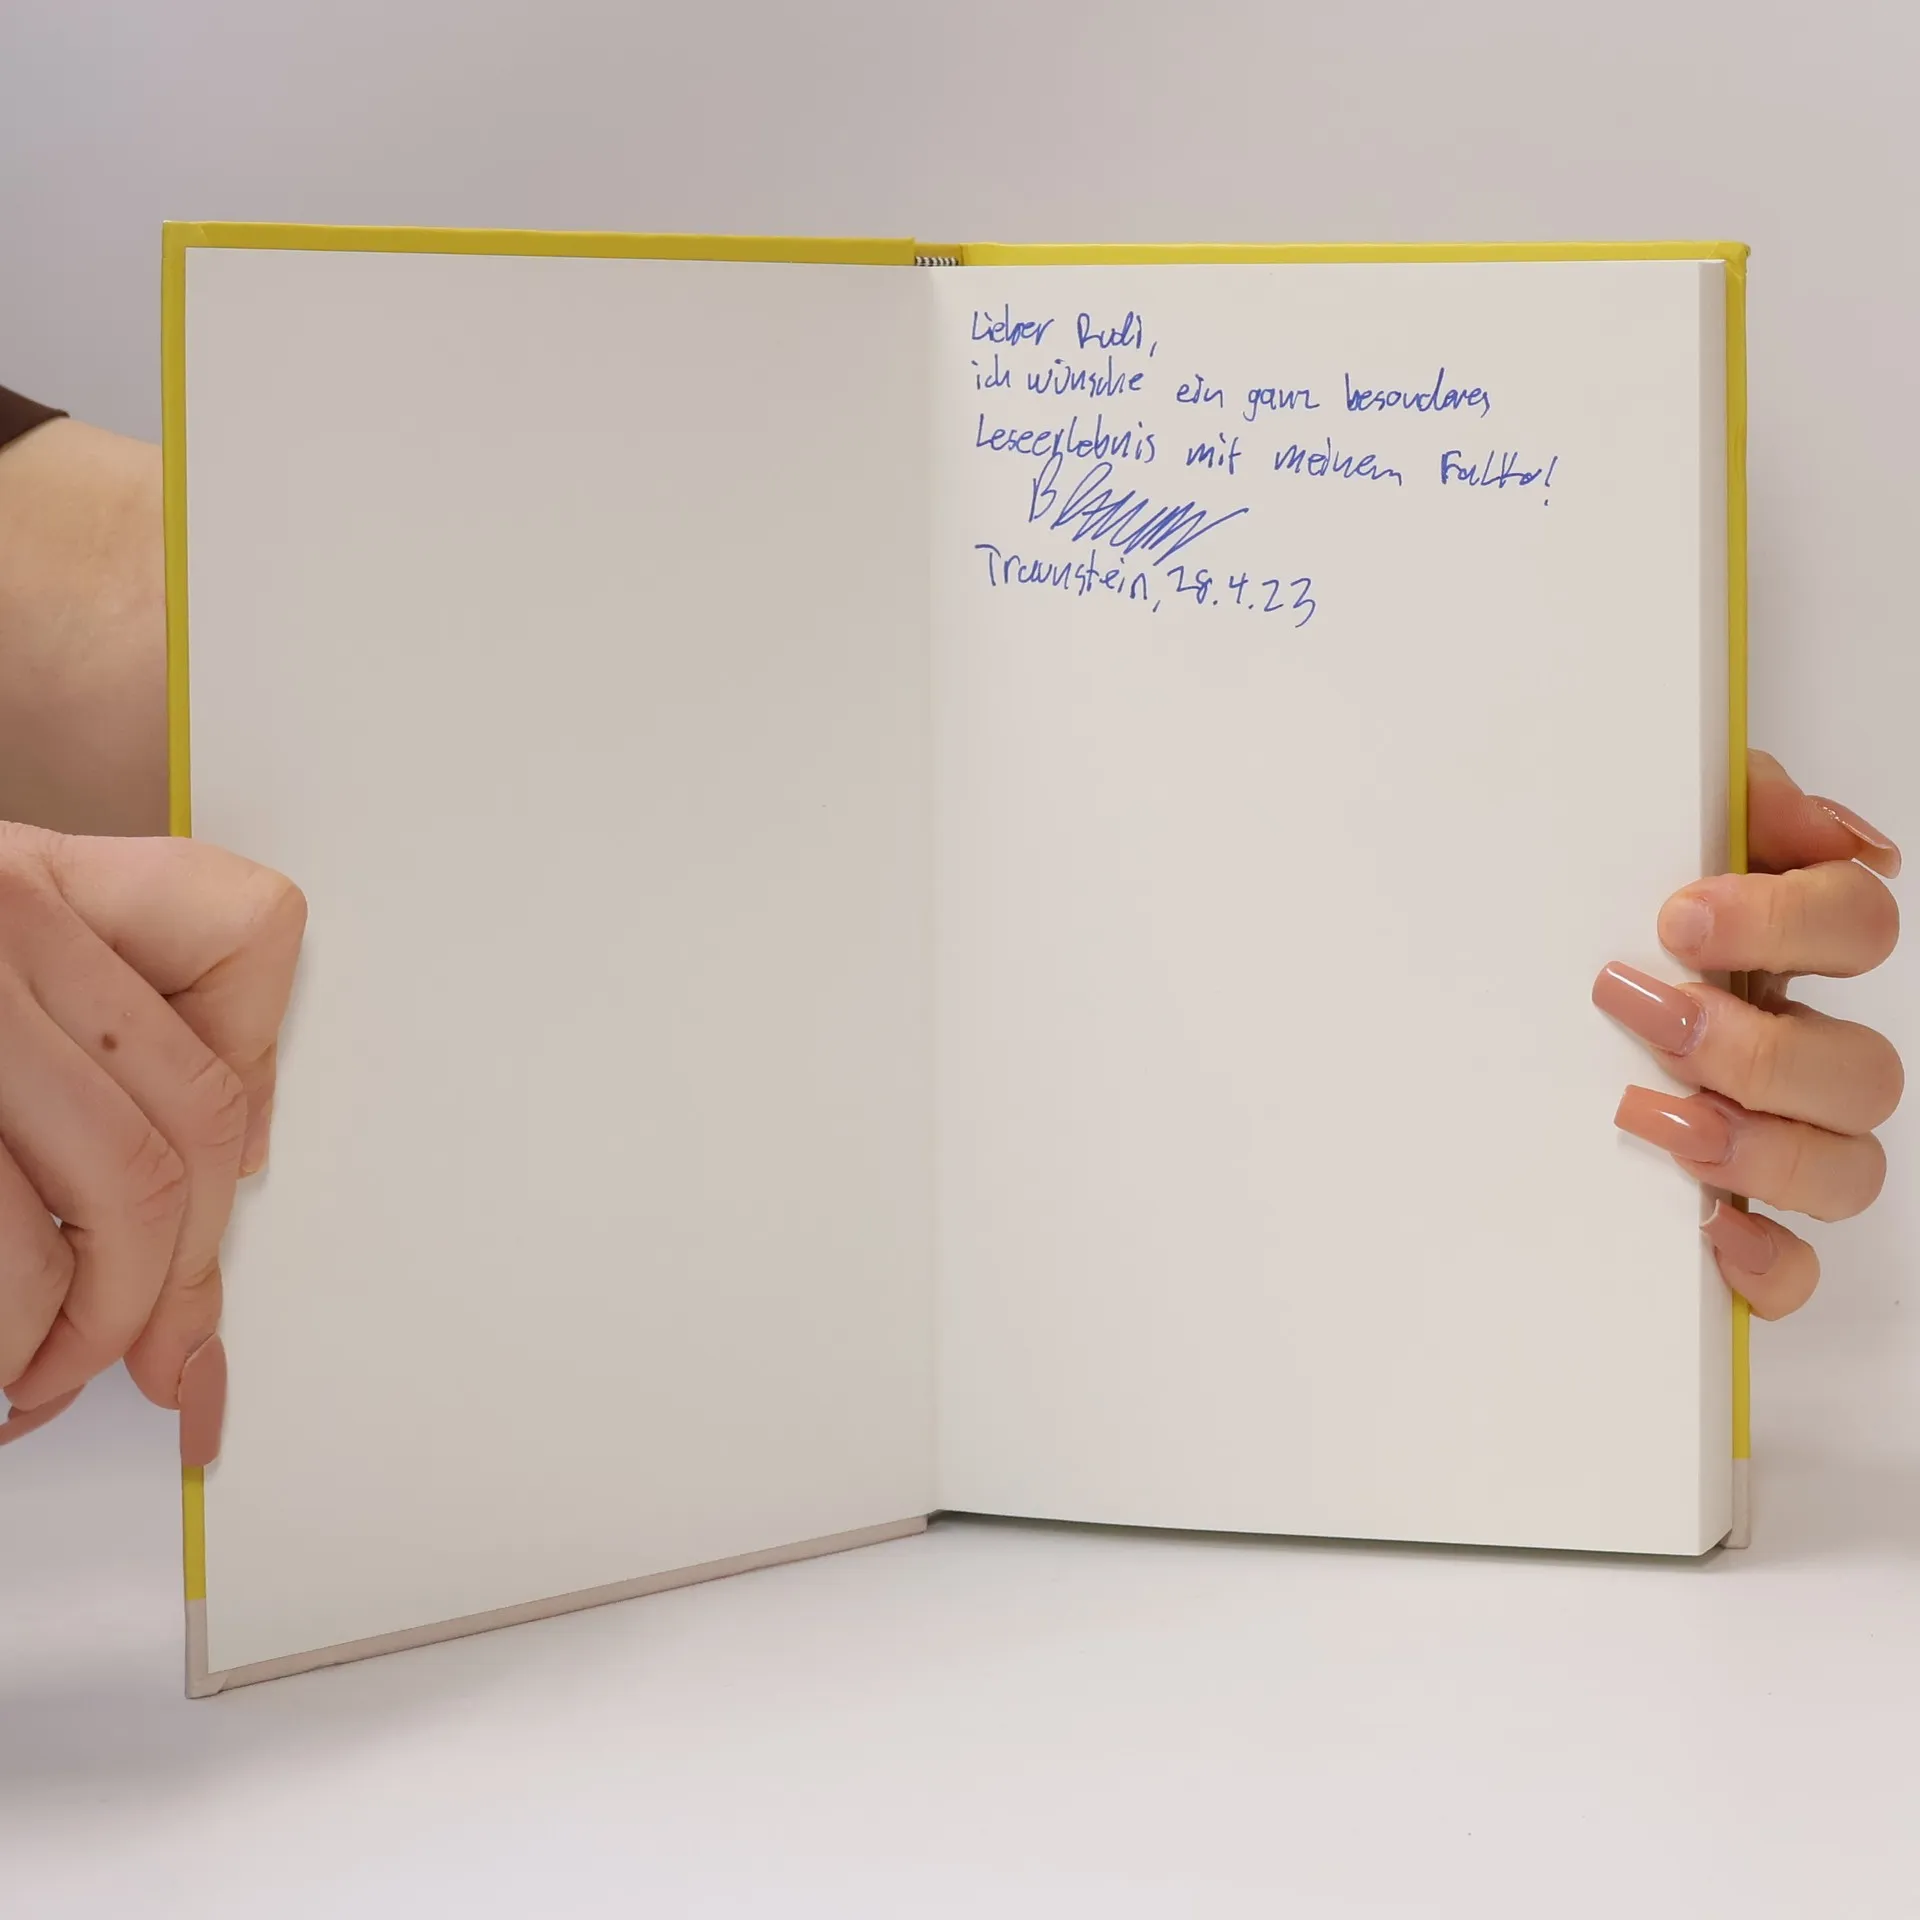 Lieber Rudi,
ich wünsche ein ganz besonderes
Leseerlebnis mit meinem Falko!
Traunstein, 28.4.23